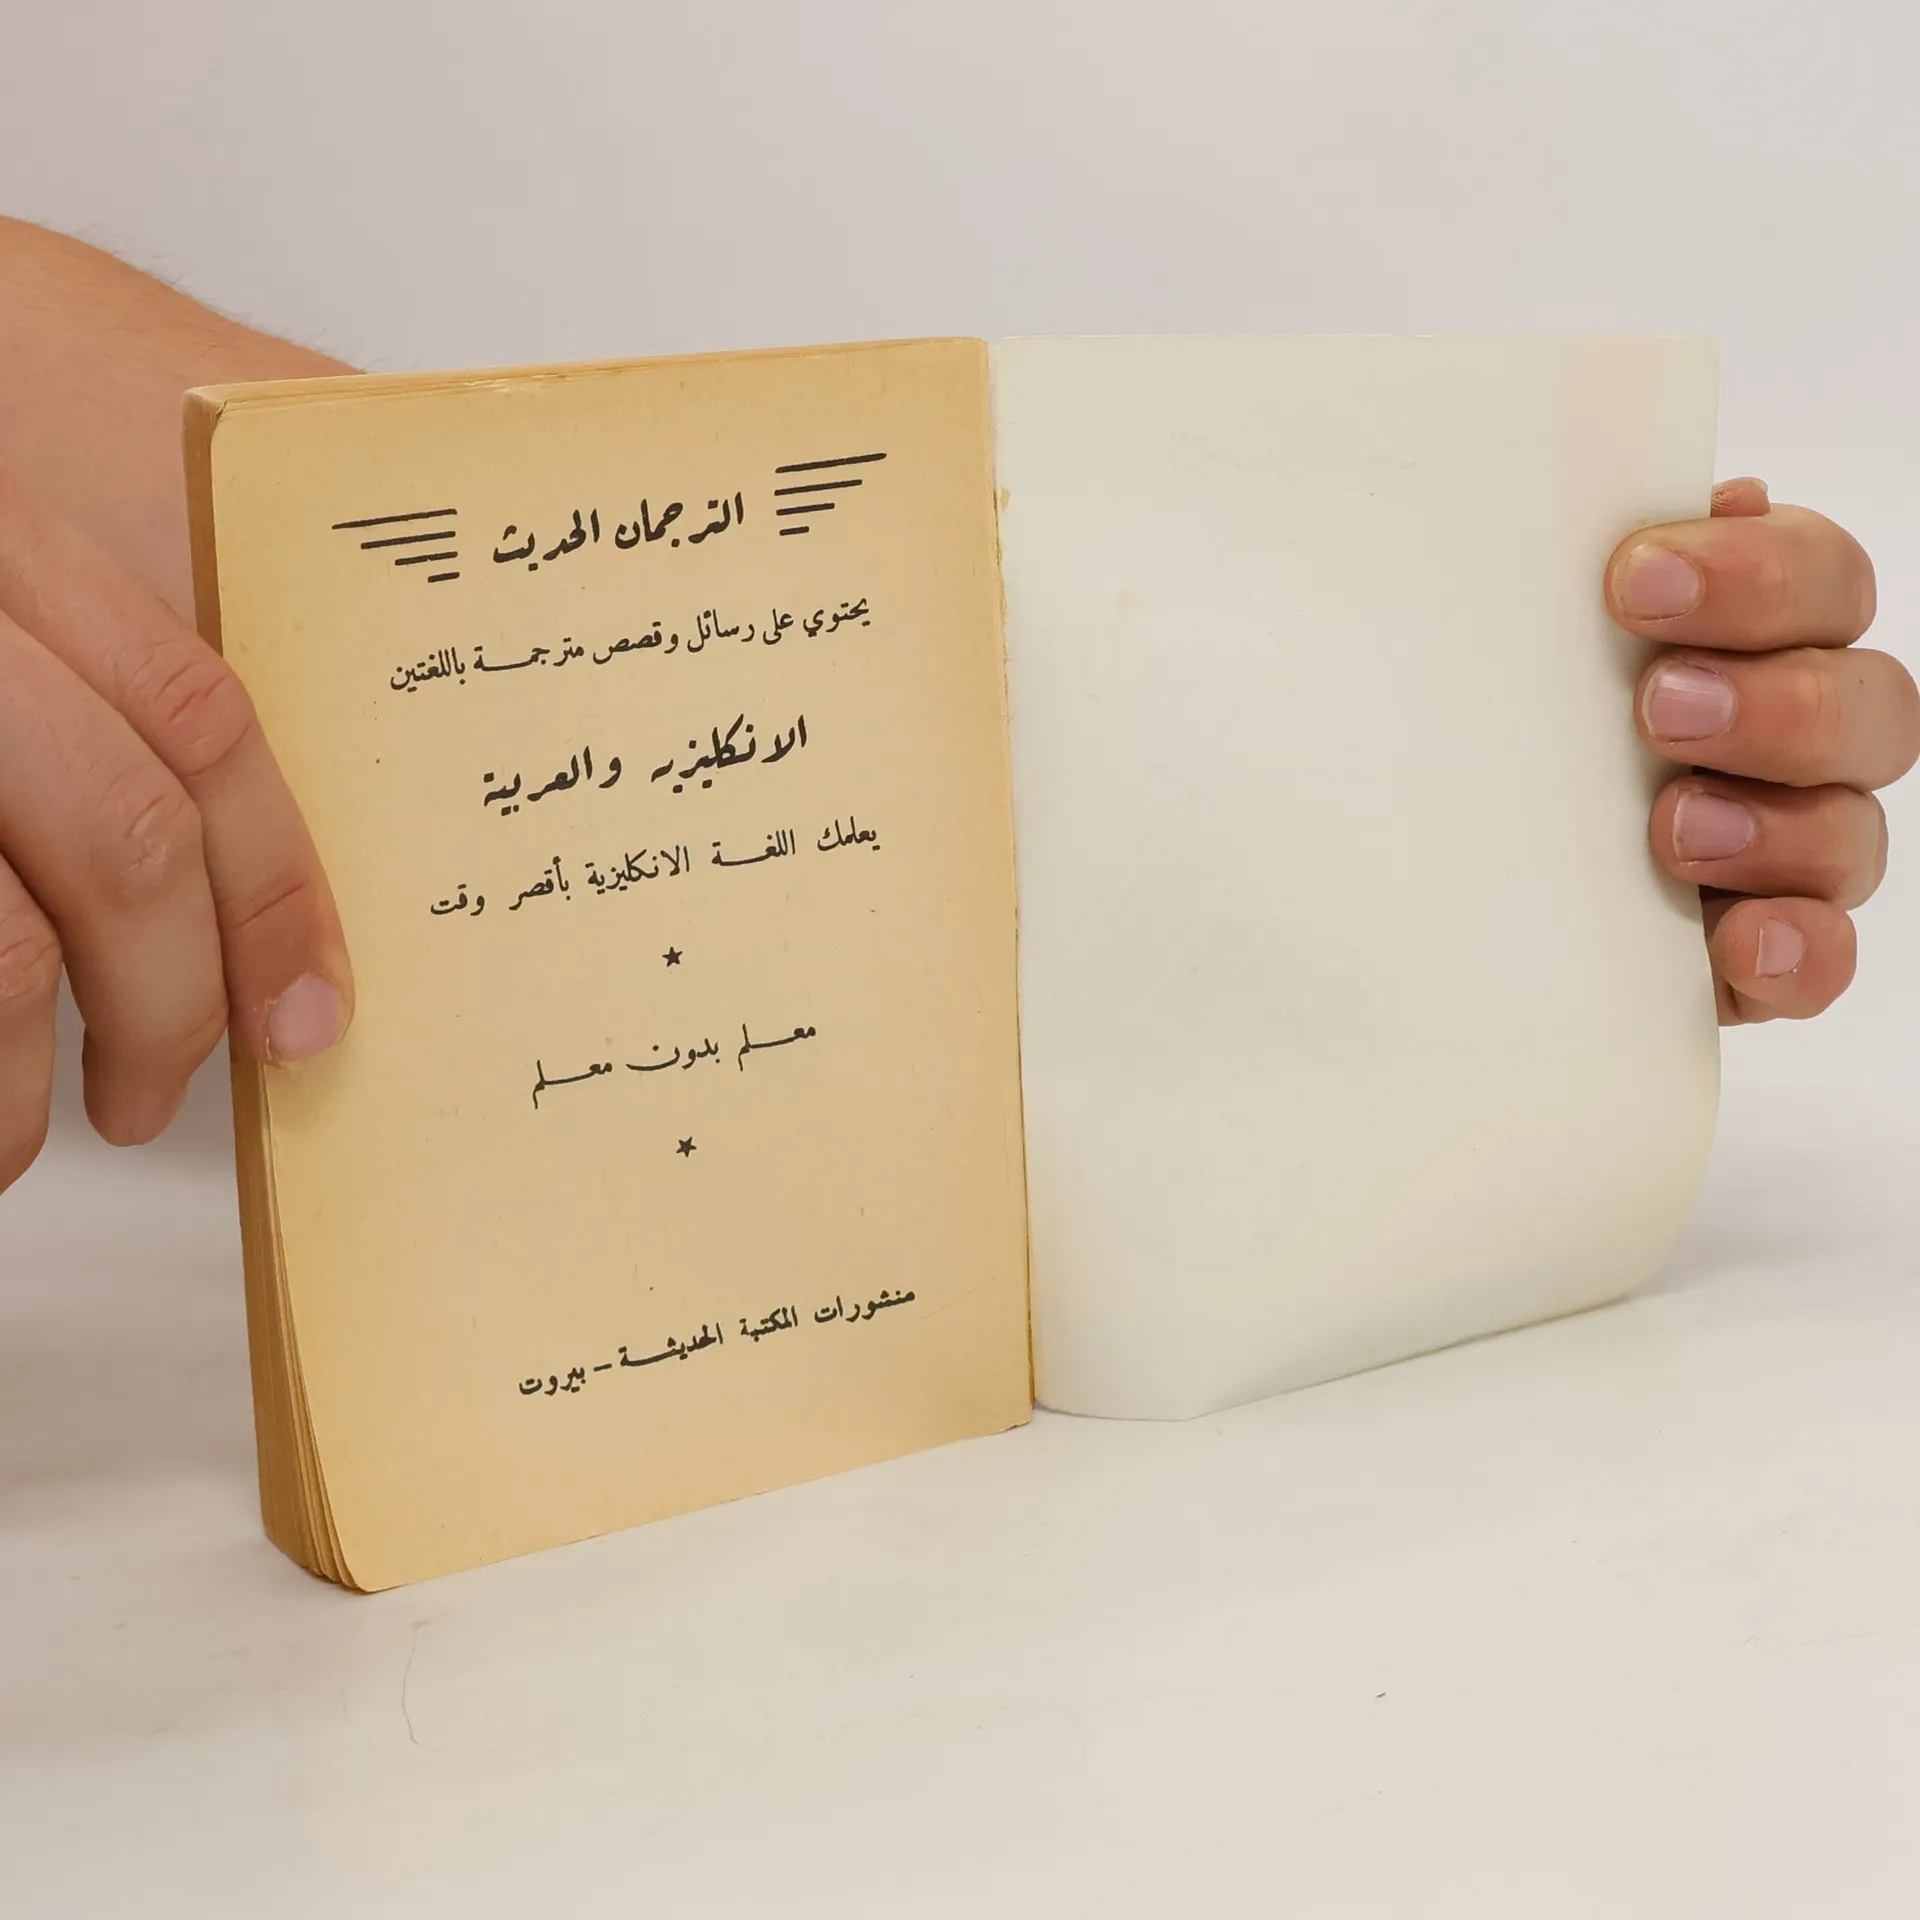 الترجمان الحديث
يحتوي على رسائل وقصص مترجمة باللغتين
الانكليزية والعربية
يعلمك اللغة الانكليزية بأقصر وقت
★
معلم بدون معلم
★
منشورات المكتبة الحديثة - بيروت